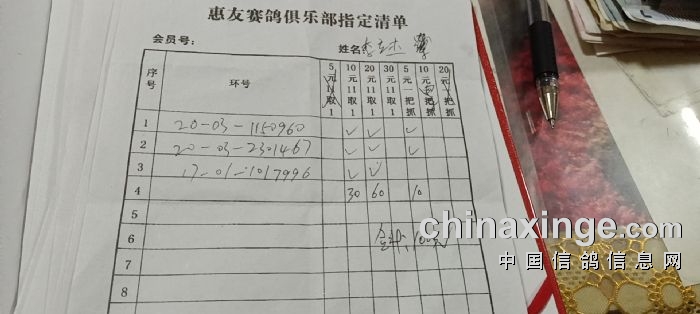 惠友赛鸽俱乐部指定清单
会员号： 姓名：李立木
序号 环号 5元11取1 10元11取1 20元11取1 30元11取1 5元一把抓 10元一把抓 20元一把抓
1 20-03-1150960 ✓ ✓ ✓
2 20-03-2301467 ✓ ✓ ✓
3 17-01-1017996 ✓ ✓
4 30 60 10
5
6 合计：100元
7
8
chinaxinge.com
中国信鸽信息网